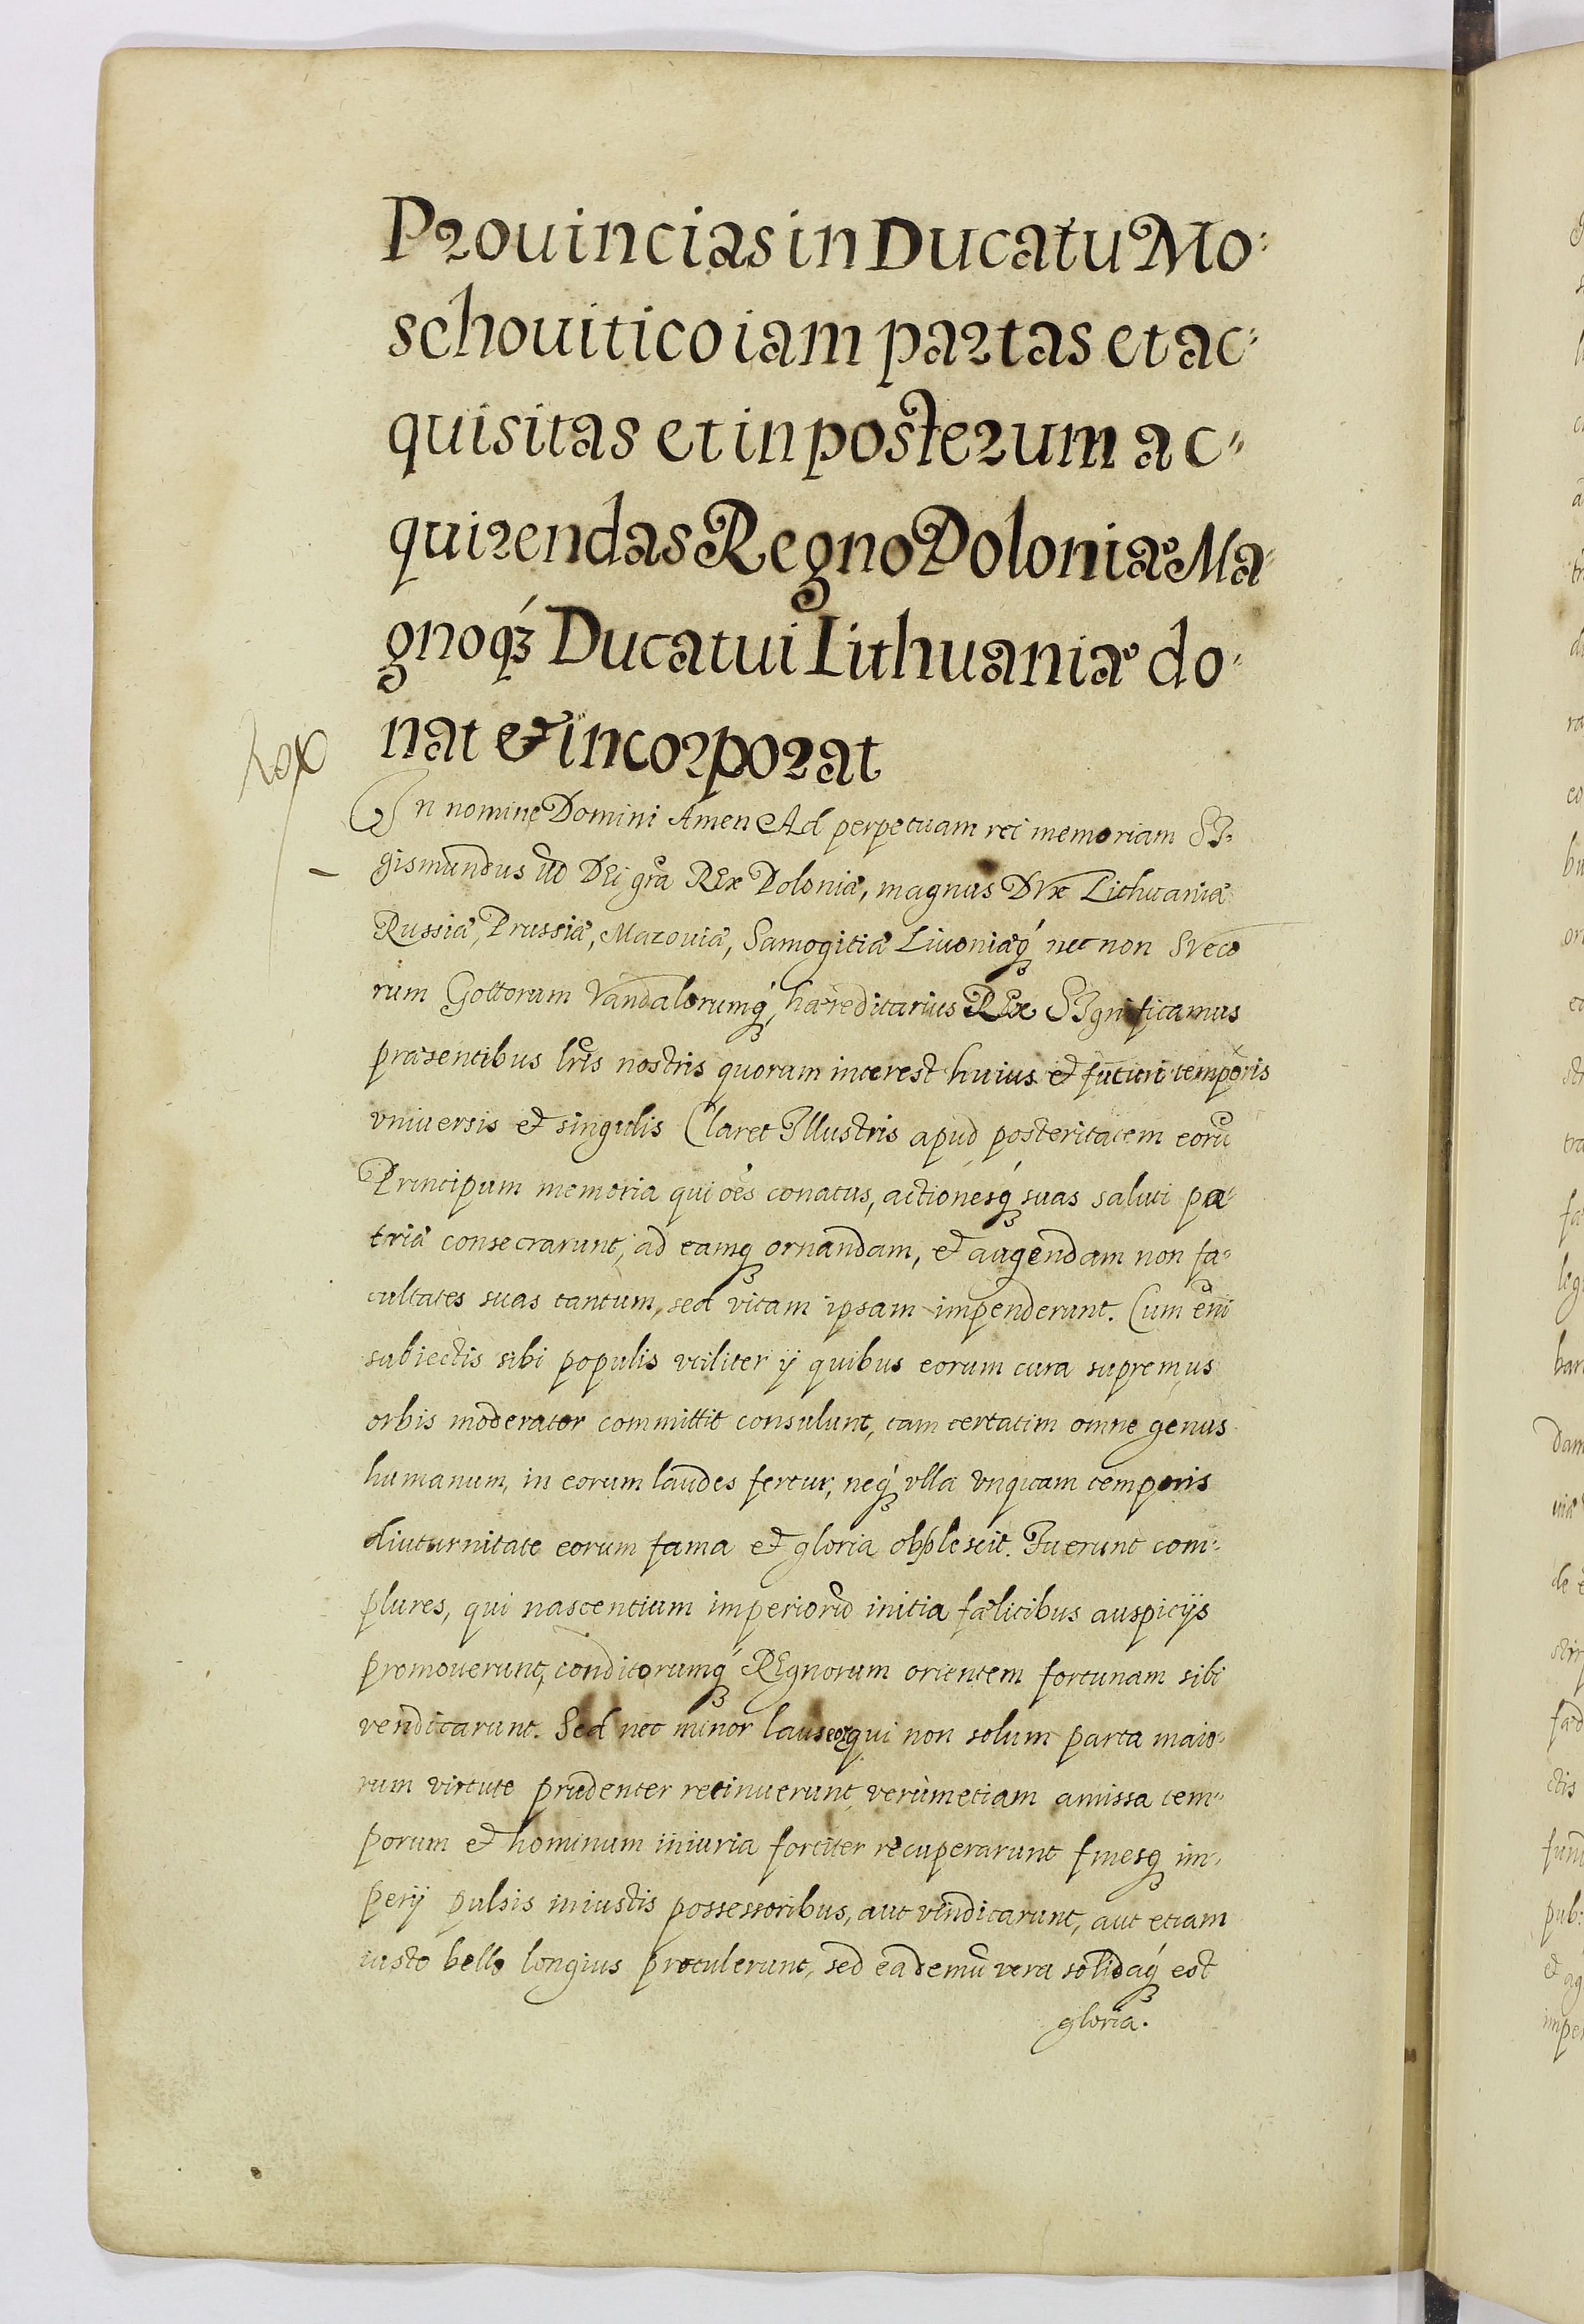 Prouincias in Ducatu Mo:
schouitico iam partas et ac:
quisitas et in posterum ac:
quirendas Regno Poloniæ Ma:
gnoqꝫ Ducatui Lithuaniæ do:
nat et incorporat
Rex
In nomine Domini Amen Ad perpetuam rei memoriam SI:
gismundus DEi gra REx Poloniæ, magnus DVx Lithuaniæ
Russiæ, Prussiæ, Mazouiæ, Samogitiæ Liuoniæqꝫ nec non Sueco
rum Gottorum Vandalorumqꝫ, hæreditarius REx SIgnificamus
præsentibus lris nostris quorum interest huius et futuri temporis
vniuersis et singulis Claret Illustris apud posteritatem eorũ
Principum memoria qui oẽs conatus, actionesqꝫ suas saluti pa:
triæ consecrarunt, ad eamqꝫ ornandam, et augendam non fa:
cultates suas tantum, sed vitam ipsam impenderunt. Cum eni
subiectis sibi populis vtiliter ij quibus eorum cura supremus
orbis moderator committit consulunt, tam certatim omne genus
humanum, in eorum laudes fertur, neqꝫ vlla vnquam temporis
diuturnitate eorum fama et gloria obsolescit. Fuerunt com:
plures, qui nascentium imperiorũ initia fælicibus auspicijs
promouerunt, conditorumqꝫ REgnorum orientem fortunam sibi
vendicarunt. Sed nec minor laus eorꝫ qui non solum parta maio:
rum virtute prudenter retinuerunt, verùm etiam amissa tem:
porum et hominum iniuria fortiter recuperarunt finesqꝫ im:
perij pulsis iniustis possessoribus, aut vindicarunt, aut etiam
iusto bello longius protulerunt, sed eademũ vera solidaqꝫ est
gloria.